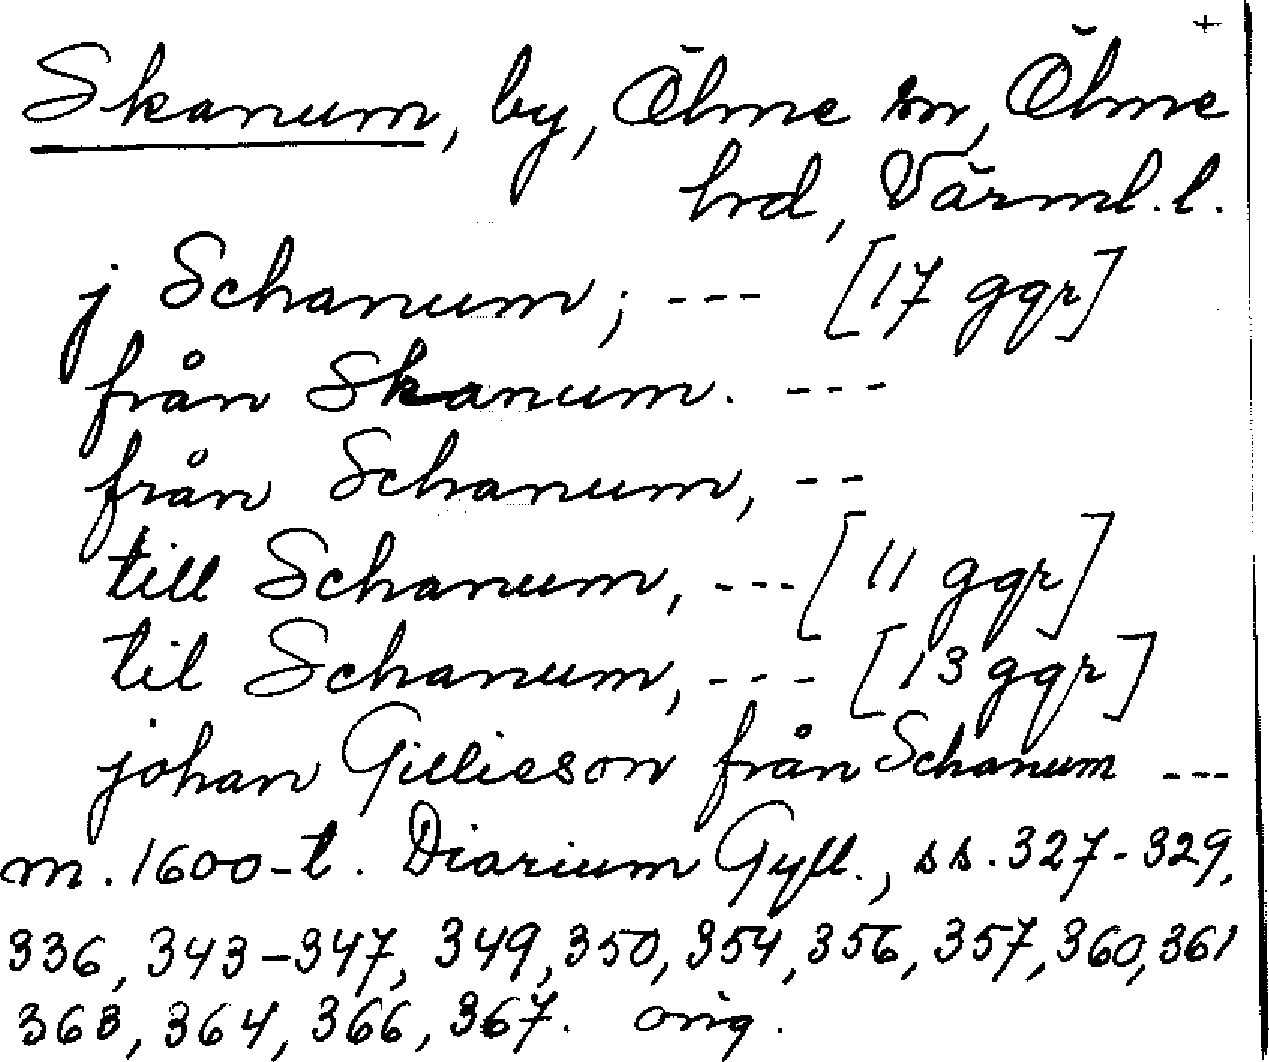 +
Skanum, by, Ölme sn, Ölme
hrd, Värml. l.
j Schanum; --- [17 ggr]
från Skanum. ---
från Schanum, --
till Schanum, --- [11 ggr]
til Schanum, --- [13 ggr]
johan Gillieson från Schanum ---
m. 1600-t. Diarium Gyll., ss. 327-329,
336, 343-347, 349, 350, 354, 356, 357, 360, 361
363, 364, 366, 367. orig.